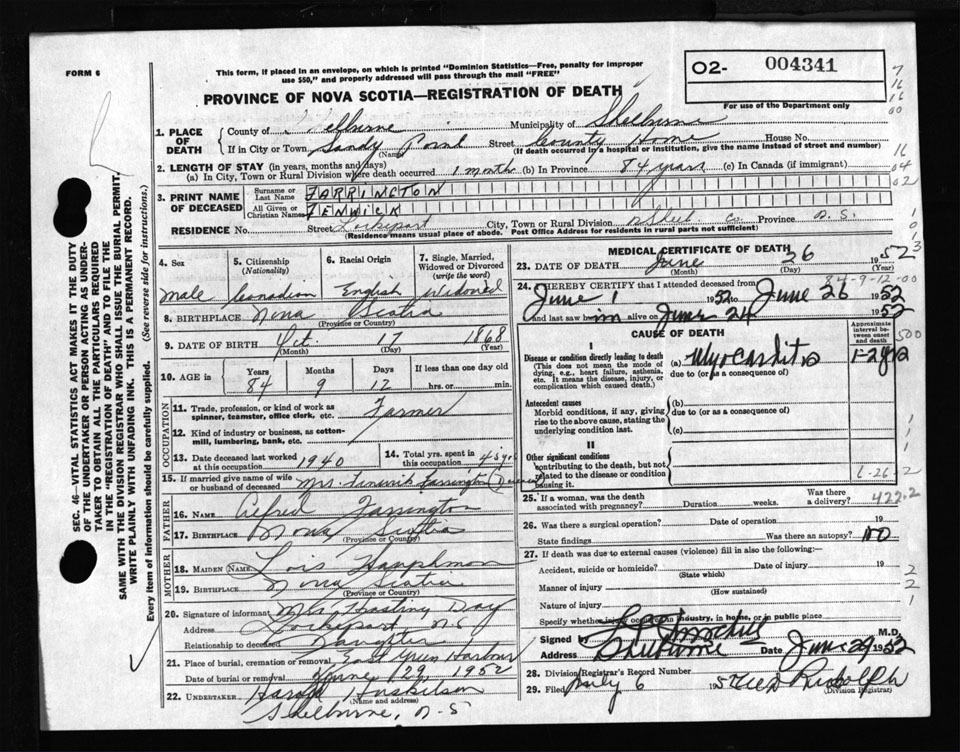 FORM 6
This form, if placed in an envelope, on which is printed "Dominion Statistics—Free, penalty for improper
use $50," and properly addressed will pass through the mail "FREE"
PROVINCE OF NOVA SCOTIA—REGISTRATION OF DEATH
O2- 004341
For use of the Department only
1. PLACE OF DEATH
County of Shelburne Municipality of Shelburne
If in City or Town Sandy Point Street County Home House No.
(Name) (If death occurred in a hospital or institution, give the name instead of street and number)
2. LENGTH OF STAY (in years, months and days)
(a) In City, Town or Rural Division where death occurred 1 month (b) In Province 84 years (c) In Canada (if immigrant)
3. PRINT NAME OF DECEASED
Surname or Last Name FARRINGTON
All Given or Christian Names FENWICK
RESIDENCE No. Street Lockeport City, Town or Rural Division Shel. Co. Province N.S.
(Residence means usual place of abode. Post Office Address for residents in rural parts not sufficient)
4. Sex
Male
5. Citizenship
(Nationality)
Canadian
6. Racial Origin
English
7. Single, Married, Widowed or Divorced
(write the word)
Widowed
8. BIRTHPLACE Nova Scotia
(Province or Country)
9. DATE OF BIRTH 17 1868
(Month) (Day) (Year)
10. AGE in
Years Months Days If less than one day old
84 9 12 hrs. or min.
OCCUPATION
11. Trade, profession, or kind of work as spinner, teamster, office clerk, etc. Farmer
12. Kind of industry or business, as cotton-mill, lumbering, bank, etc.
13. Date deceased last worked at this occupation 1940
14. Total yrs. spent in this occupation 45 yrs
15. If married give name of wife or husband of deceased Mrs. Fenwick Farrington
FATHER
16. Name Alfred Farrington
17. BIRTHPLACE Nova Scotia
(Province or Country)
MOTHER
18. MAIDEN Name Lois
19. BIRTHPLACE Nova Scotia
(Province or Country)
20. Signature of informant Mrs. Day
Address Lockeport N.S.
Relationship to deceased Daughter
21. Place of burial, cremation or removal East Green Harbour
Date of burial or removal June 29, 1952
22. UNDERTAKER Harold Huskilson
(Name and address)
Shelburne, N.S
MEDICAL CERTIFICATE OF DEATH
23. DATE OF DEATH June 26 1952
(Month) (Day) (Year)
84-9-12-00
24. I HEREBY CERTIFY that I attended deceased from
June 1 1952 to June 26 1952
and last saw him alive on June 24 1952
CAUSE OF DEATH
Approximate interval between onset and death
I
Disease or condition directly leading to death
(This does not mean the mode of dying, e.g., heart failure, asthenia, etc. It means the disease, injury, or complication which caused death.)
(a) Myocarditis
due to (or as a consequence of)
Antecedent causes
Morbid conditions, if any, giving rise to the above cause, stating the underlying condition last.
(b)
due to (or as a consequence of)
(c)
II
Other significant conditions
contributing to the death, but not related to the disease or condition causing it.
25. If a woman, was the death associated with pregnancy? Duration weeks. Was there a delivery?
422.2
26. Was there a surgical operation? Date of operation 19
State findings Was there an autopsy? no
27. If death was due to external causes (violence) fill in also the following:—
Accident, suicide or homicide? Date of injury 19
(State which)
Manner of injury
(How sustained)
Nature of injury
Specify whether injury occurred in industry, in home, or in public place
Signed by M.D.
Address Shelburne Date June 29 1952
28. Division Registrar's Record Number
29. Filed July 6 195 Rudolph
(Division Registrar)
SEC. 46—VITAL STATISTICS ACT MAKES IT THE DUTY
OF THE UNDERTAKER OR PERSON ACTING AS UNDER-
TAKER TO OBTAIN ALL THE PARTICULARS REQUIRED
IN THE "REGISTRATION OF DEATH" AND TO FILE THE
SAME WITH THE DIVISION REGISTRAR WHO SHALL ISSUE THE BURIAL PERMIT.
WRITE PLAINLY WITH UNFADING INK. THIS IS A PERMANENT RECORD.
Every item of information should be carefully supplied. (See reverse side for instructions.)